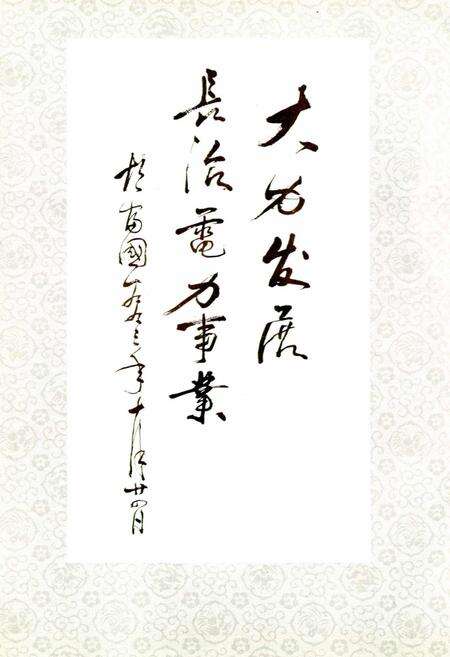 大力发展
長治電力事業
胡富國 一九九三年十月廿四日